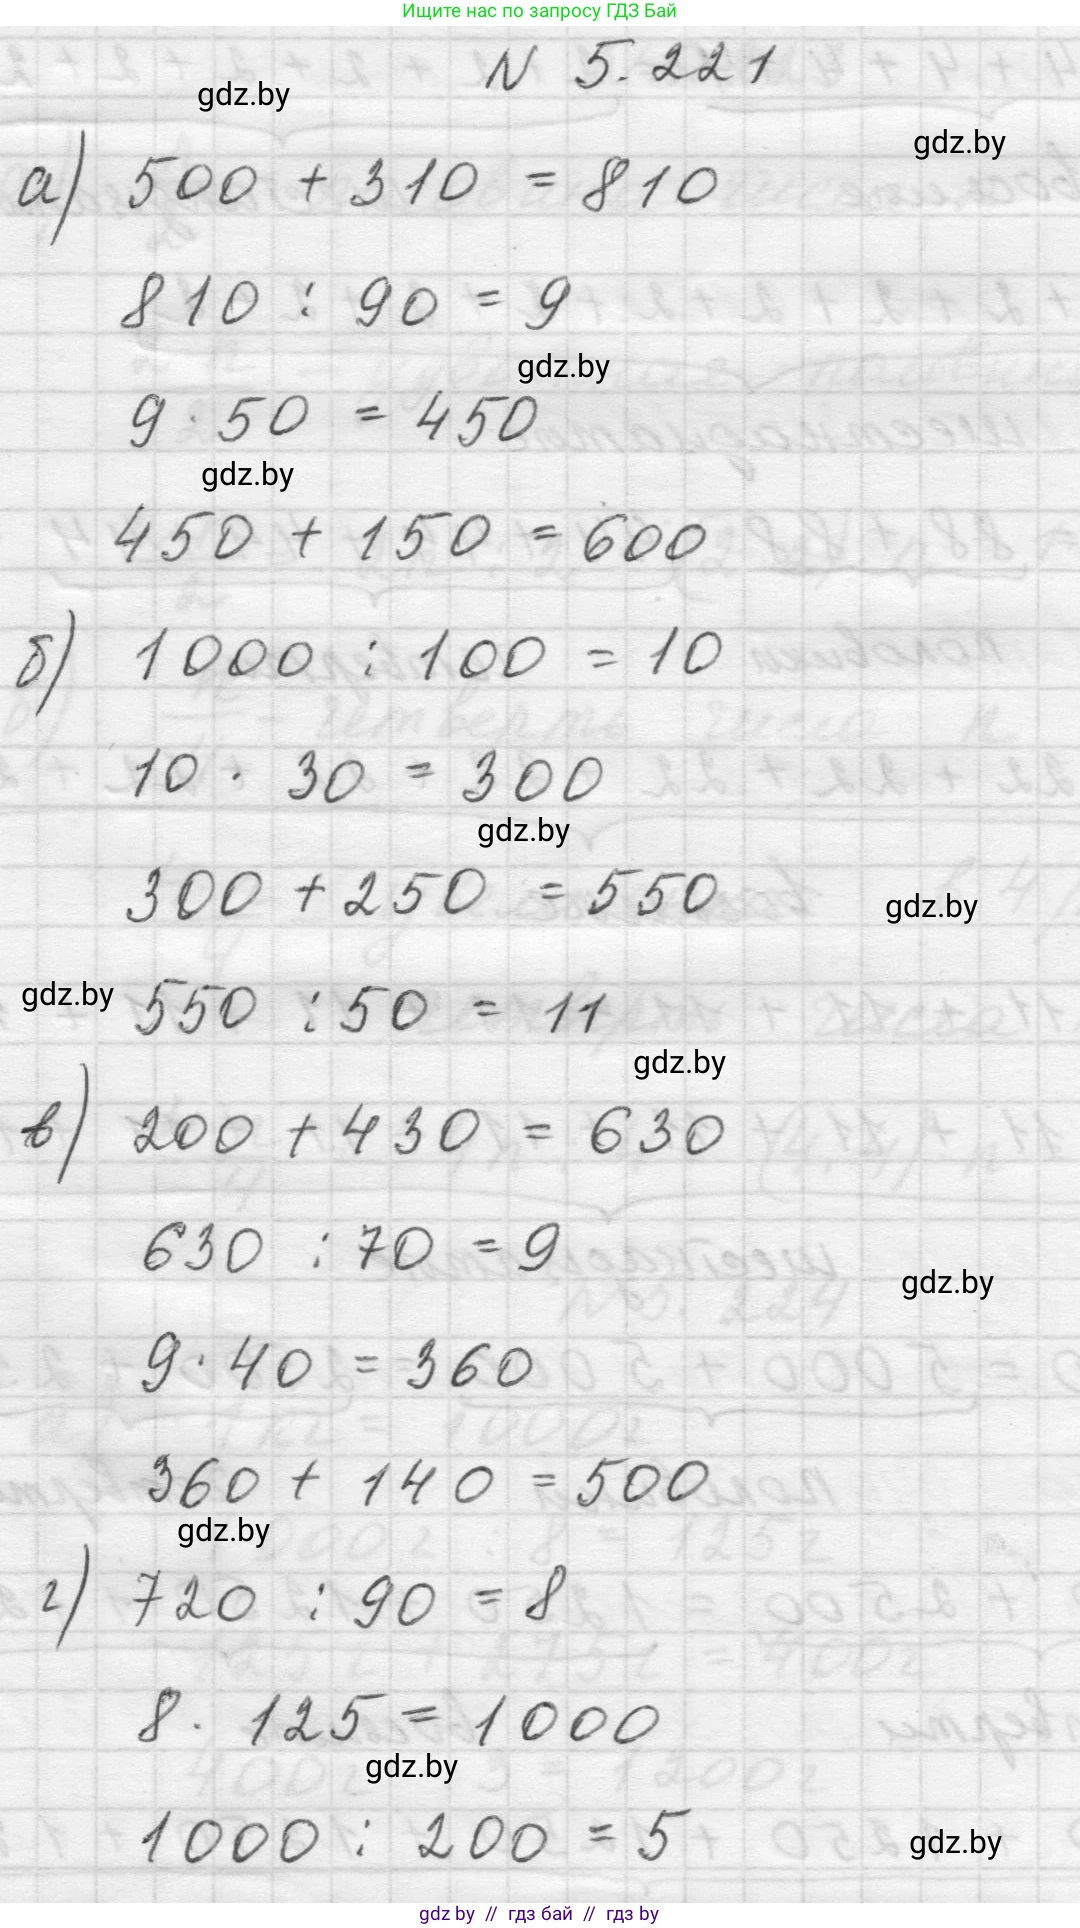 Ищите нас по запросу ГДЗ Бай
N 5.221
gdz.by
gdz.by
а) 500 + 310 = 810
810 : 90 = 9
gdz.by
9 · 50 = 450
gdz.by
450 + 150 = 600
б) 1000 : 100 = 10
10 · 30 = 300
gdz.by
300 + 250 = 550
gdz.by
gdz.by
550 : 50 = 11
gdz.by
в) 200 + 430 = 630
630 : 70 = 9
gdz.by
9 · 40 = 360
360 + 140 = 500
gdz.by
г) 720 : 90 = 8
8 · 125 = 1000
gdz.by
1000 : 200 = 5
gdz.by
gdz by // гдз бай // гдз by